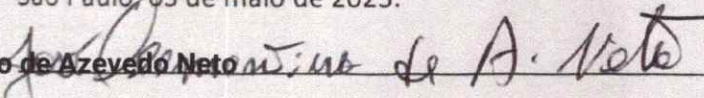 São Paulo, 05 de maio de 2025.
o de Azevedo Neto de A. Neto